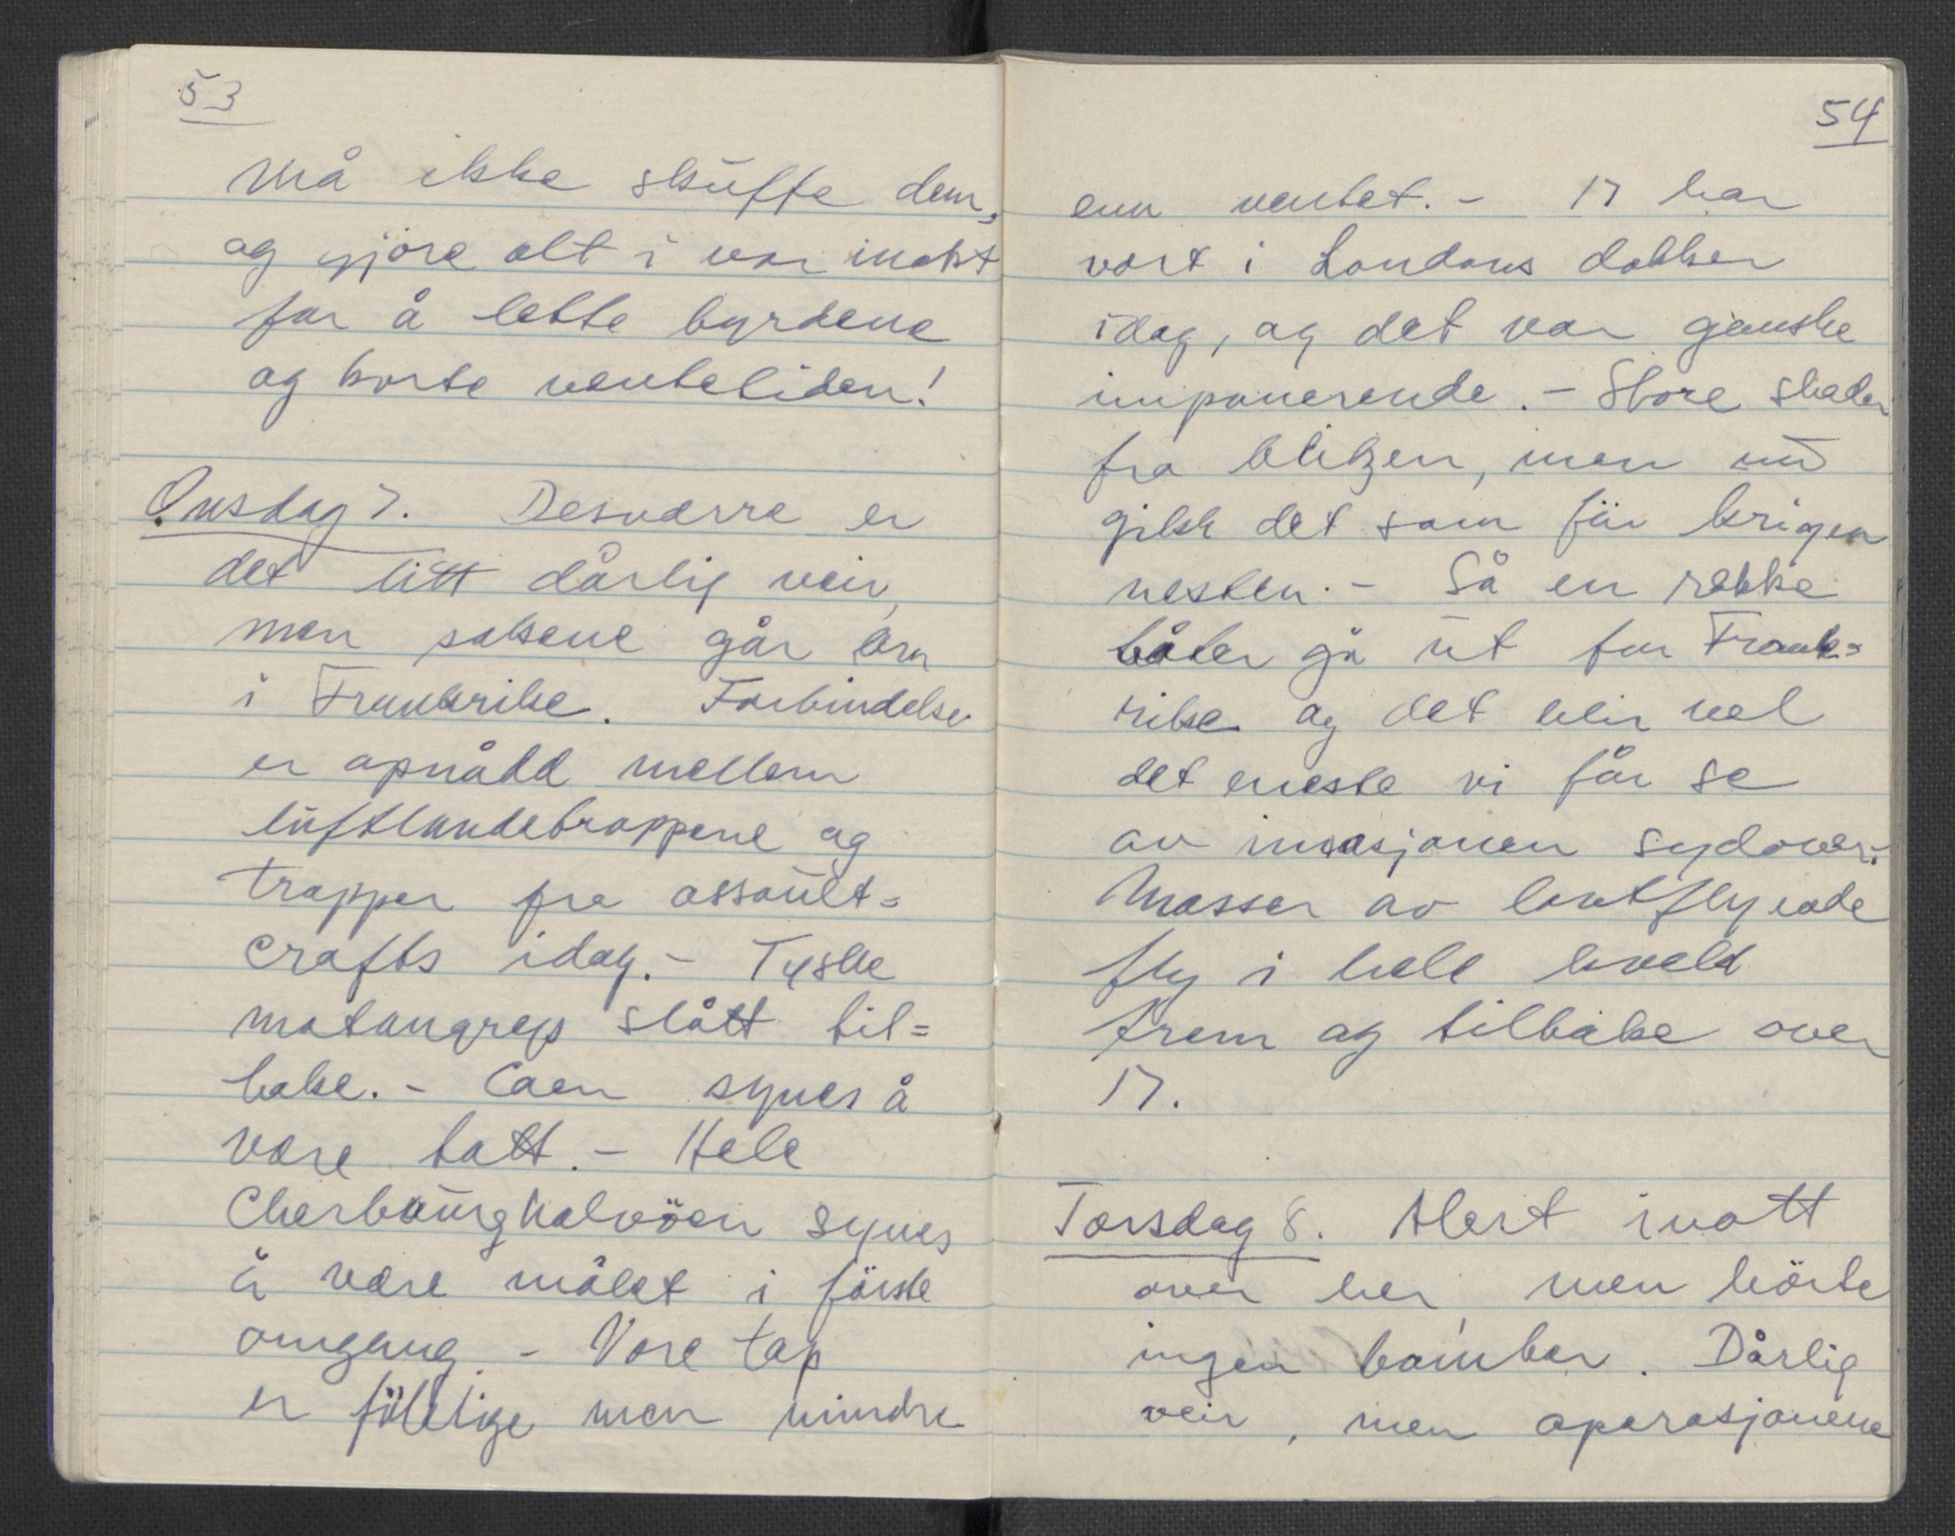 53
må ikke skuffe dem,
og gjöre alt i vor makt
for å lette byrdene
og korte ventetiden!
Onsdag 7. Desværre er
det litt dårlig veir,
men saksene går bra
i Frankrike. Forbindelse
er opnådd mellem
luftlandetroppene og
tropper fra assault=
crafts idag. - Tyske
motangreps slått til=
bake. - Caen synes å
være tatt. - Hele
Cherbourghalvöen synes
å være målet i förste
omgang. - Vore tap
er fölelige men mindre
54
enn ventet. - 17 har
vært i Londons dokker
idag, og det var ganske
imponerende. - Store skader
fra blitzen, men nu
gikk det som för krigen
nesten. - Så en rekke
båter gå ut for Frank=
rike og det blir vel
det eneste vi får se
av invasjonen sydover.
Masser av lavtflyvende
fly i hele kveld
frem og tilbake over
17.
Torsdag 8. Alert inatt
over her, men hörte
ingen bomber. Dårlig
veir, men operasjonene